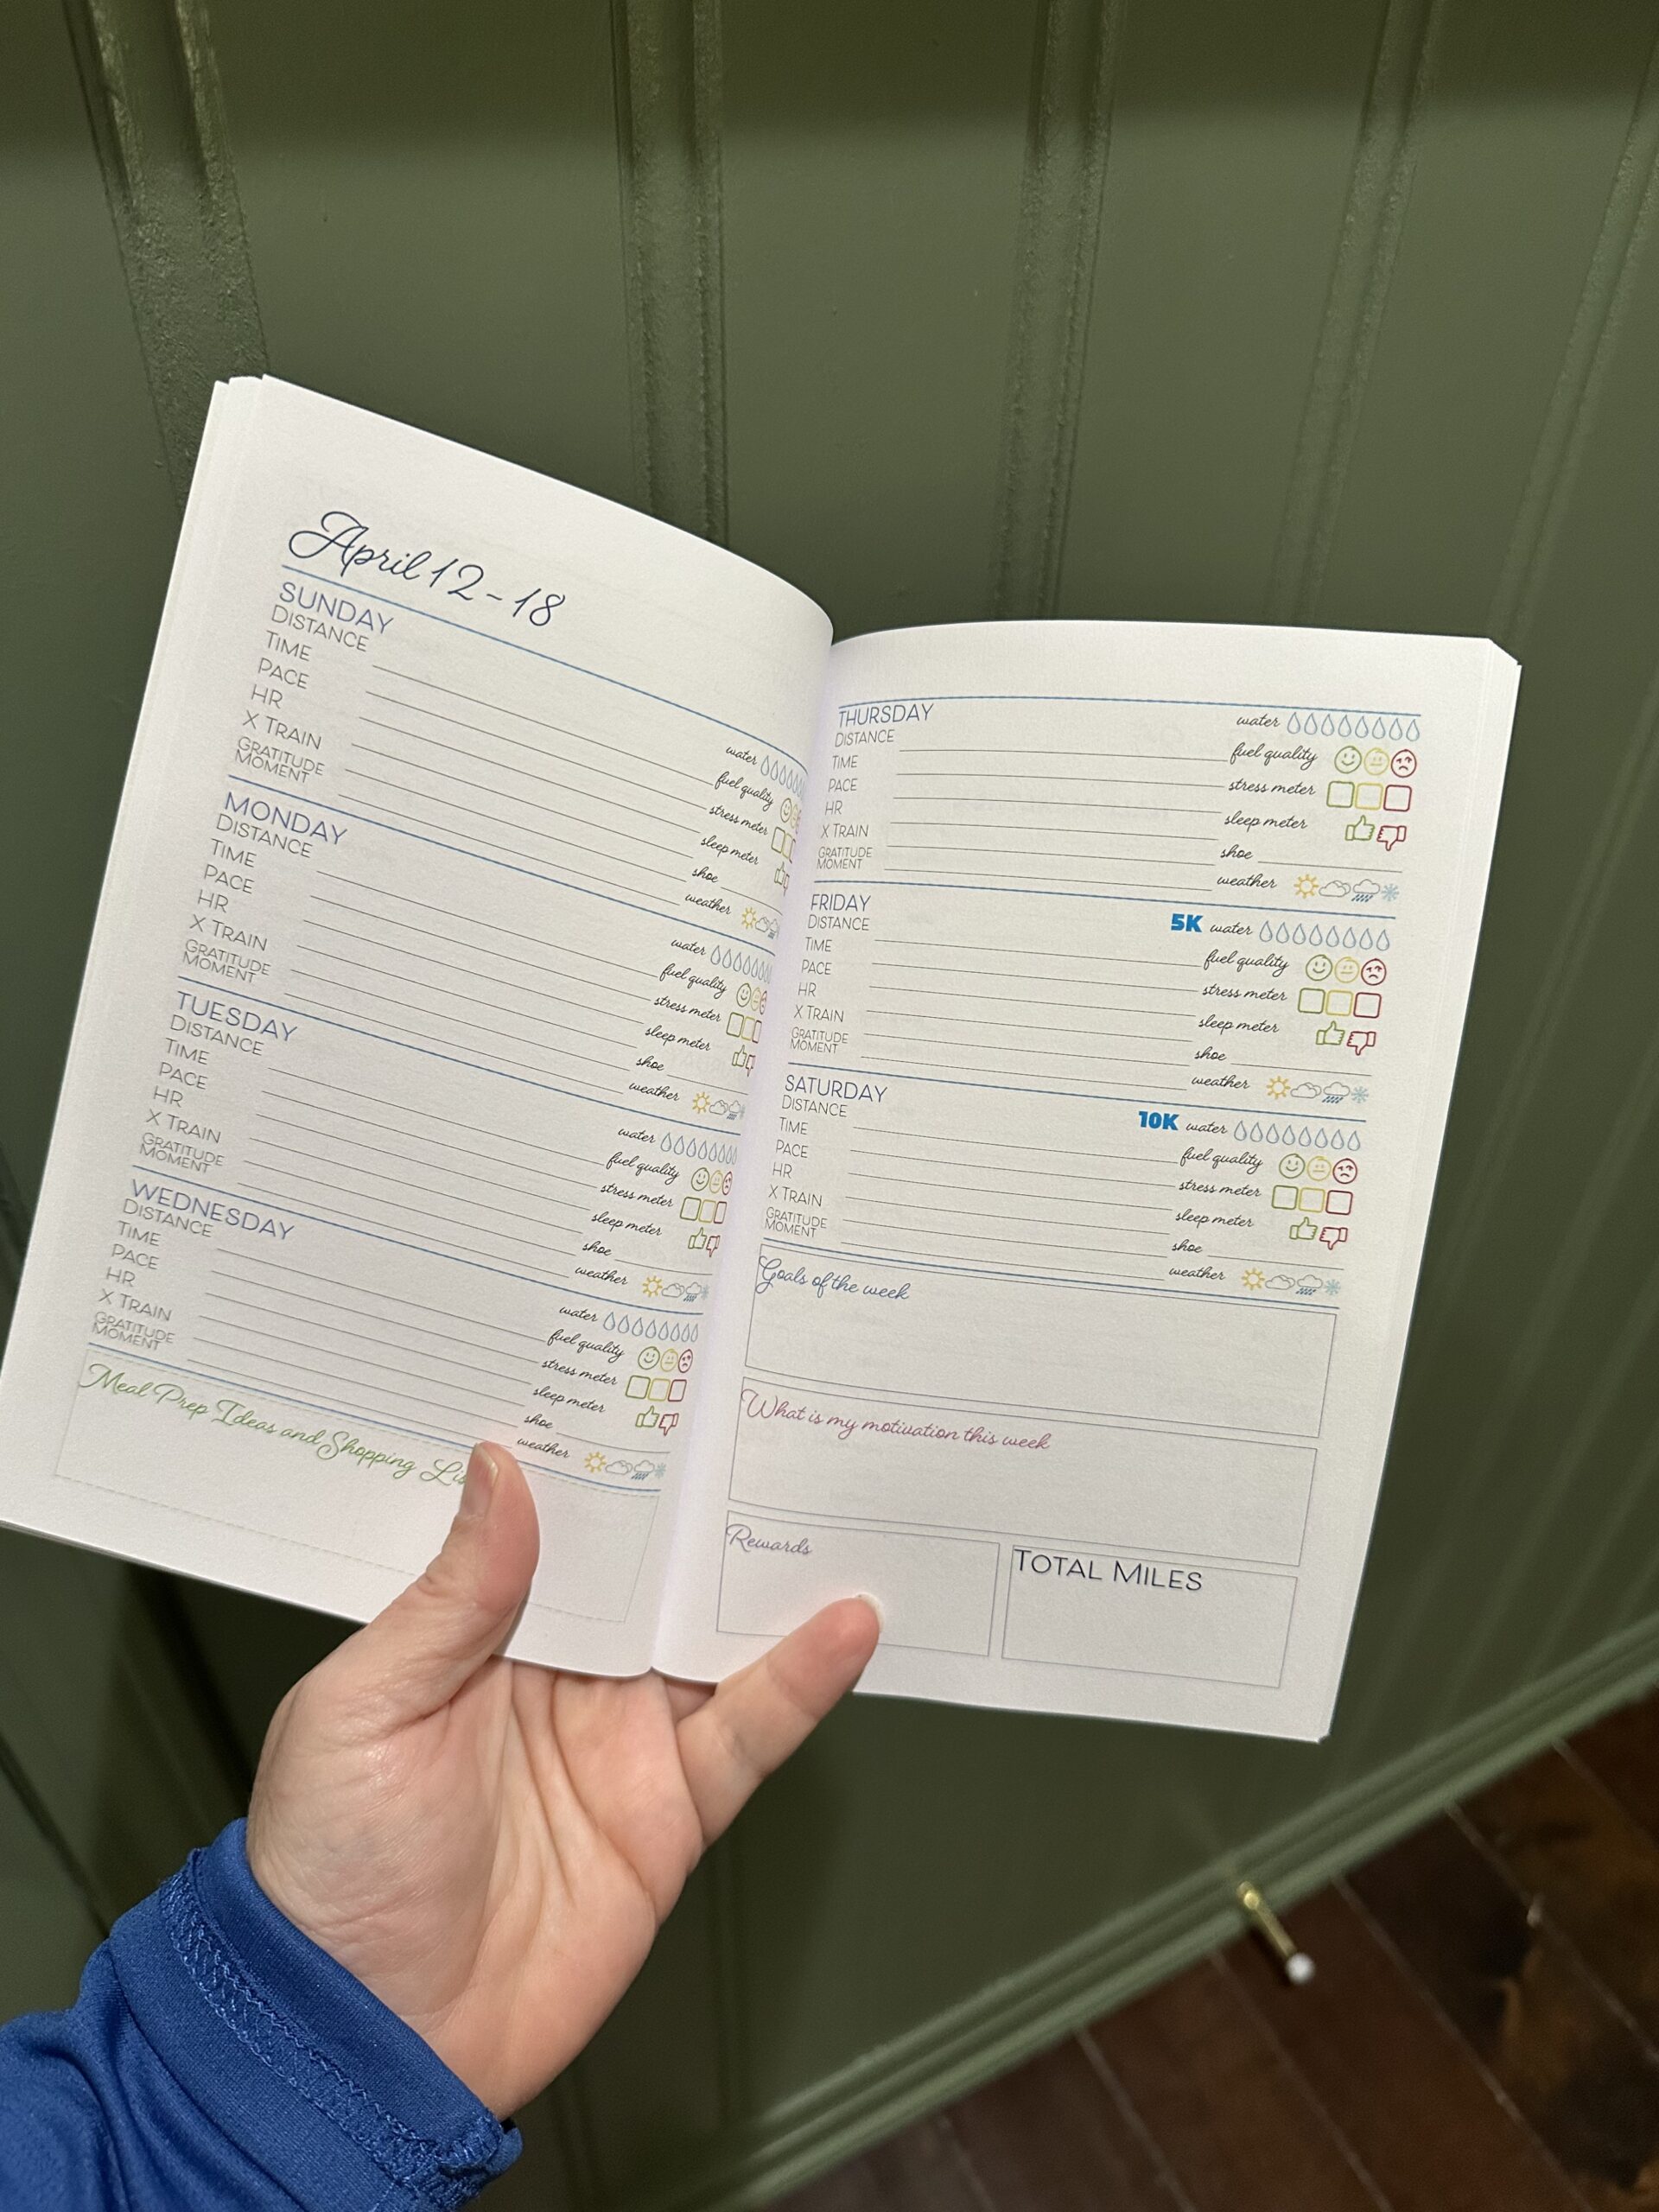 April 12 - 18
SUNDAY
DISTANCE
TIME
PACE
HR
X TRAIN
GRATITUDE
MOMENT
water
fuel quality
stress meter
sleep meter
shoe
weather
MONDAY
DISTANCE
TIME
PACE
HR
X TRAIN
GRATITUDE
MOMENT
water
fuel quality
stress meter
sleep meter
shoe
weather
TUESDAY
DISTANCE
TIME
PACE
HR
X TRAIN
GRATITUDE
MOMENT
water
fuel quality
stress meter
sleep meter
shoe
weather
WEDNESDAY
DISTANCE
TIME
PACE
HR
X TRAIN
GRATITUDE
MOMENT
water
fuel quality
stress meter
sleep meter
shoe
weather
Meal Prep Ideas and Shopping
THURSDAY
DISTANCE
TIME
PACE
HR
X TRAIN
GRATITUDE
MOMENT
water
fuel quality
stress meter
sleep meter
shoe
weather
FRIDAY
DISTANCE
TIME
PACE
HR
X TRAIN
GRATITUDE
MOMENT
5K water
fuel quality
stress meter
sleep meter
shoe
weather
SATURDAY
DISTANCE
TIME
PACE
HR
X TRAIN
GRATITUDE
MOMENT
10K water
fuel quality
stress meter
sleep meter
shoe
weather
Goals of the week
What is my motivation this week
Rewards
TOTAL MILES